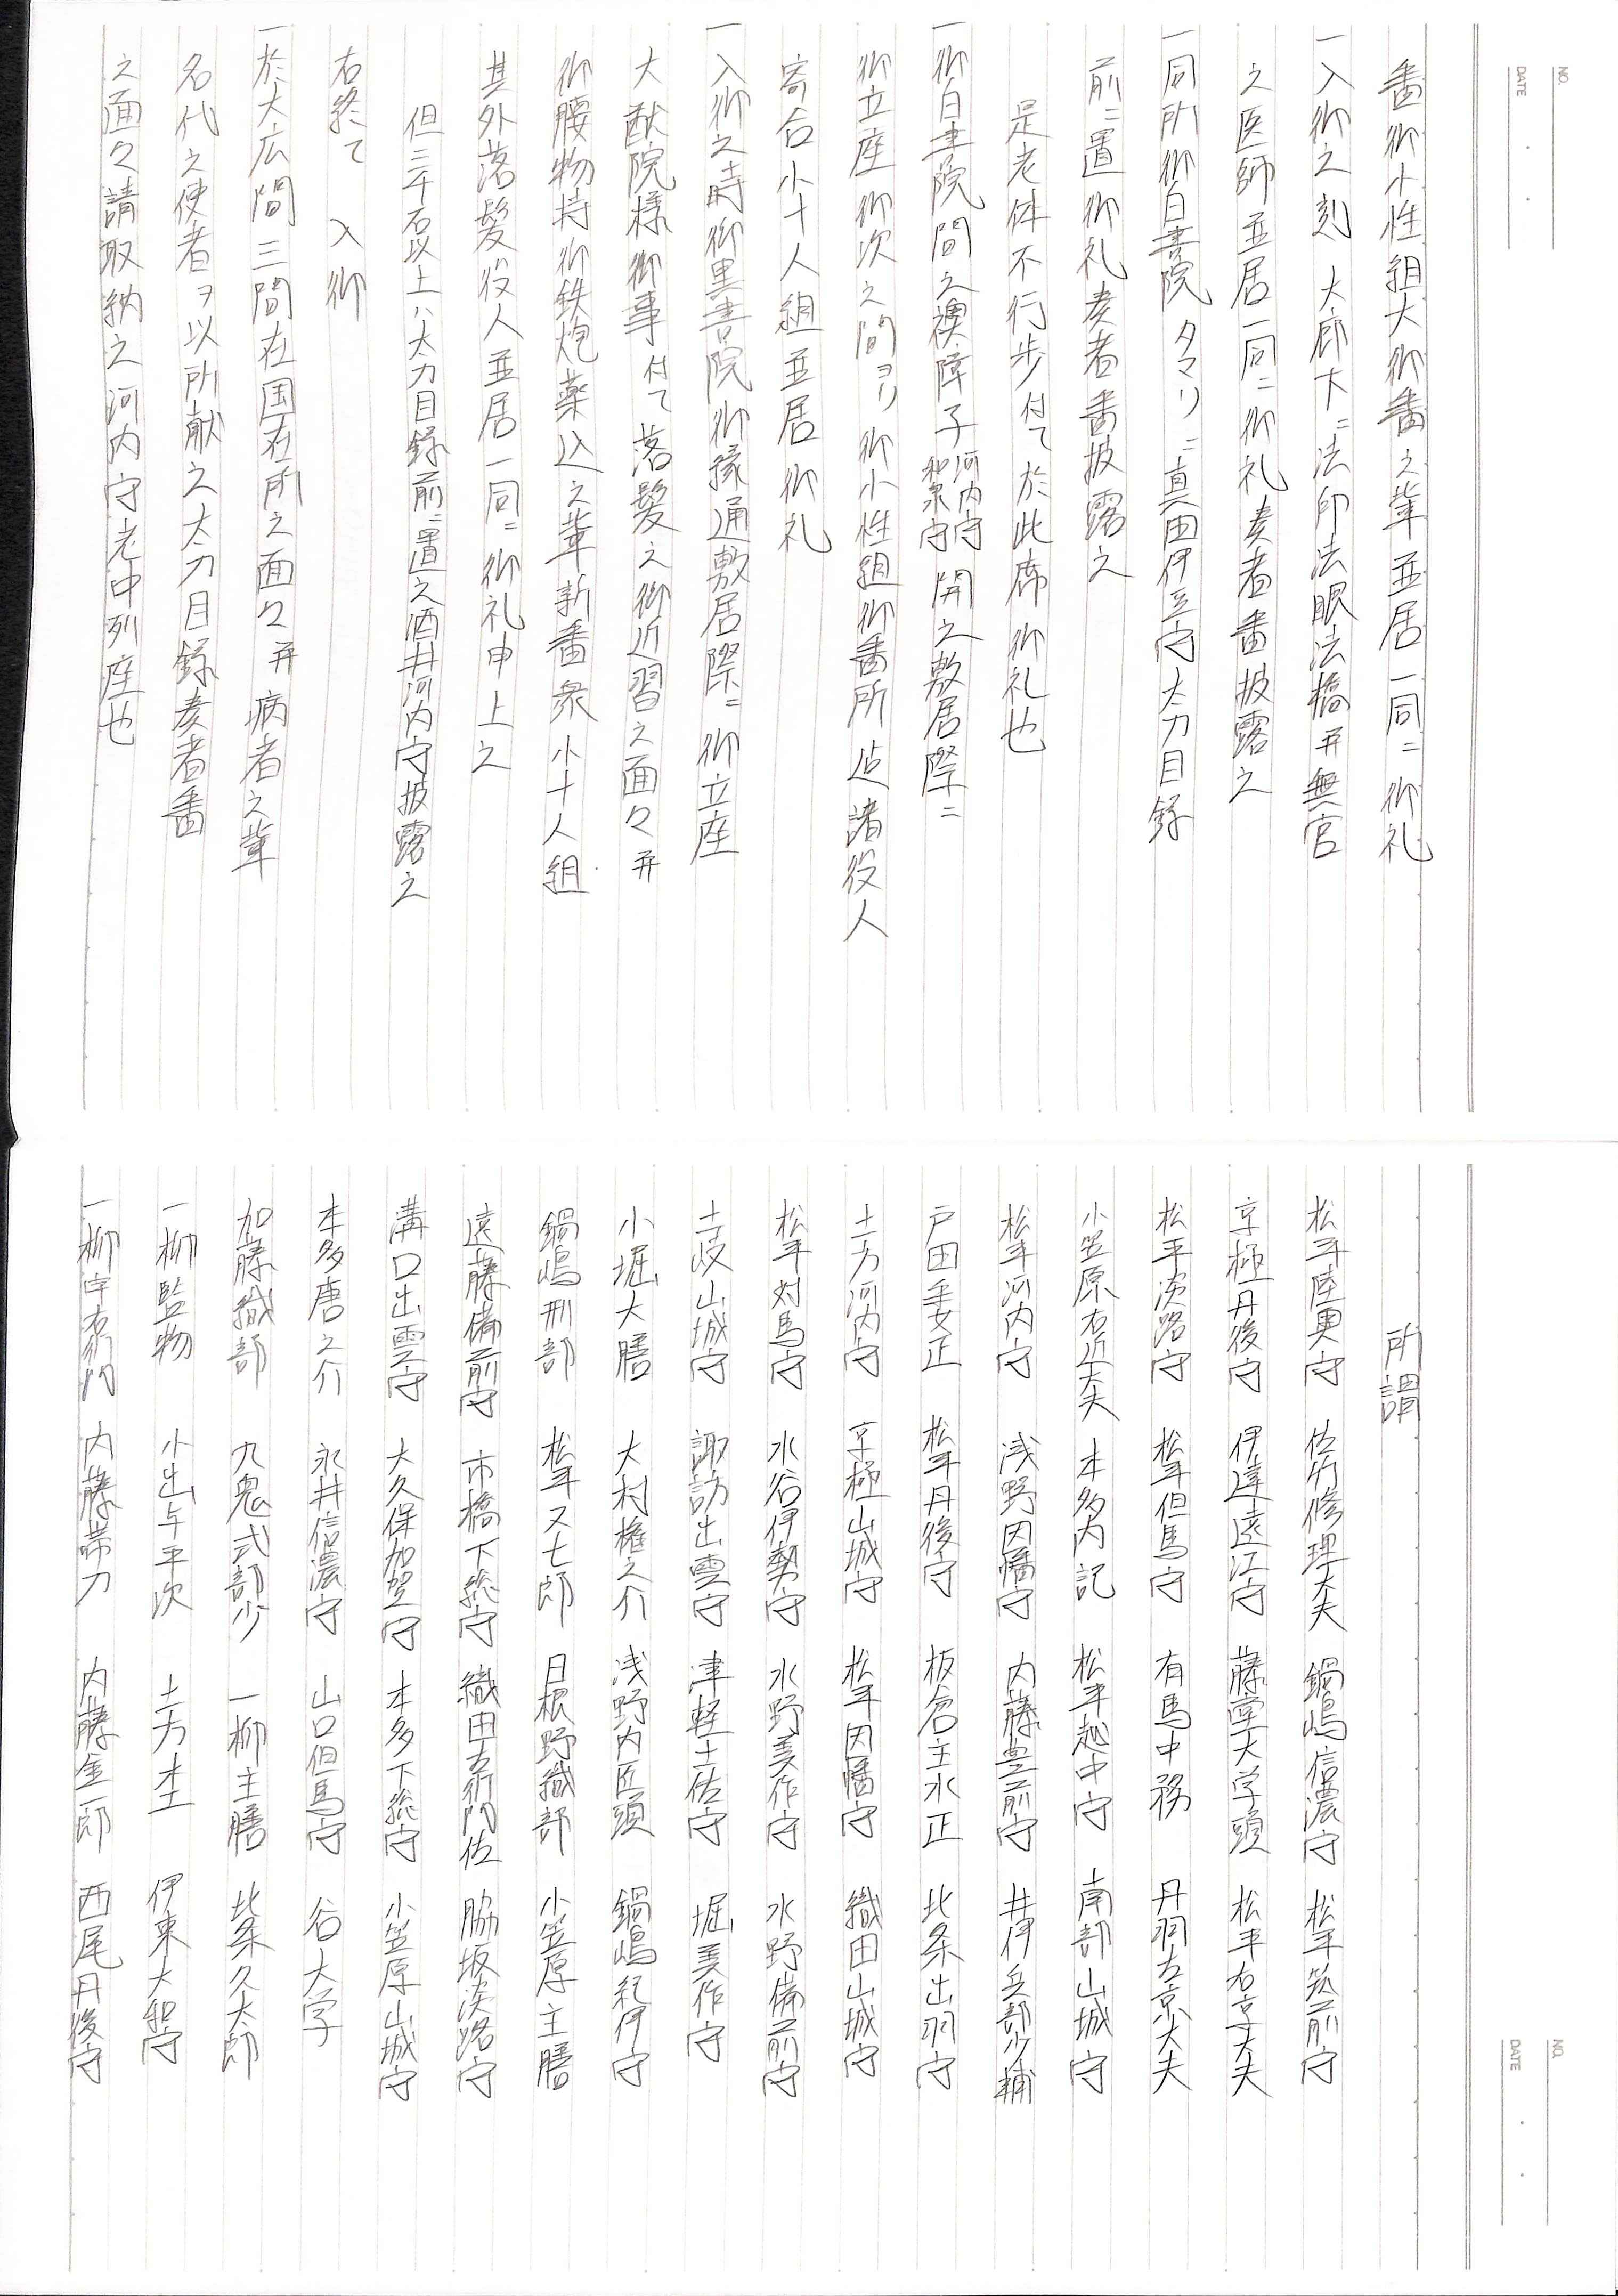 NO.
DATE
番御小性組大御番之輩並居一同ニ御礼
一入御之刻 大廊下ニ法印法眼法橋并無官
之医師並居一同ニ御礼奏者番披露之
一同所御白書院タマリニ真田伊豆守太刀目録
前ニ置御礼奏者番披露之
是老体不行歩付て於此席御礼也
一御白書院間之襖障子 河内守 和泉守 開之敷居際ニ
御立座御次之間ヨリ御小性組御番所迠諸役人
寄合小十人組並居御礼
一入御之時御黒書院御椽通敷居際ニ御立座
大猷院様御事付て落髪之御近習之面々并
御腰物持御鉄炮薬込之輩新番衆小十人組
其外落髪役人並居一同ニ御礼申上之
但三千石以上ハ太刀目録前ニ置之酒井河内守披露之
右終て 入御
一於大広間三間在国在所之面々并病者之輩
名代之使者ヲ以所献之太刀目録奏者番
之面々請取納之河内守老中列座也
NO.
DATE
所謂
松平陸奥守 佐竹修理大夫 鍋嶋信濃守 松平筑前守
京極丹後守 伊達遠江守 藤堂大学頭 松平右京大夫
松平淡路守 松平但馬守 有馬中務 丹羽左京大夫
小笠原右近大夫 本多内記 松平越中守 南部山城守
松平河内守 浅野因幡守 内藤豊前守 井伊兵部少輔
戸田采女正 松平丹後守 板倉主水正 北条出羽守
土方河内守 京極山城守 松平因幡守 織田山城守
松平対馬守 水谷伊勢守 水野美作守 水野備前守
土岐山城守 諏訪出雲守 津軽土佐守 堀美作守
小堀大膳 大村権之介 浅野内匠頭 鍋嶋紀伊守
鍋嶋刑部 松平又七郎 日根野織部 小笠原主膳
遠藤備前守 市橋下総守 織田左衛門佐 脇坂淡路守
溝口出雲守 大久保加賀守 本多下総守 小笠原山城守
本多唐之介 永井信濃守 山口但馬守 谷大学
加藤織部 九鬼式部少 一柳主膳 北条久太郎
一柳監物 小出与平次 土方杢 伊東大和守
一柳宇右衛門 内藤帯刀 内藤金一郎 西尾丹後守